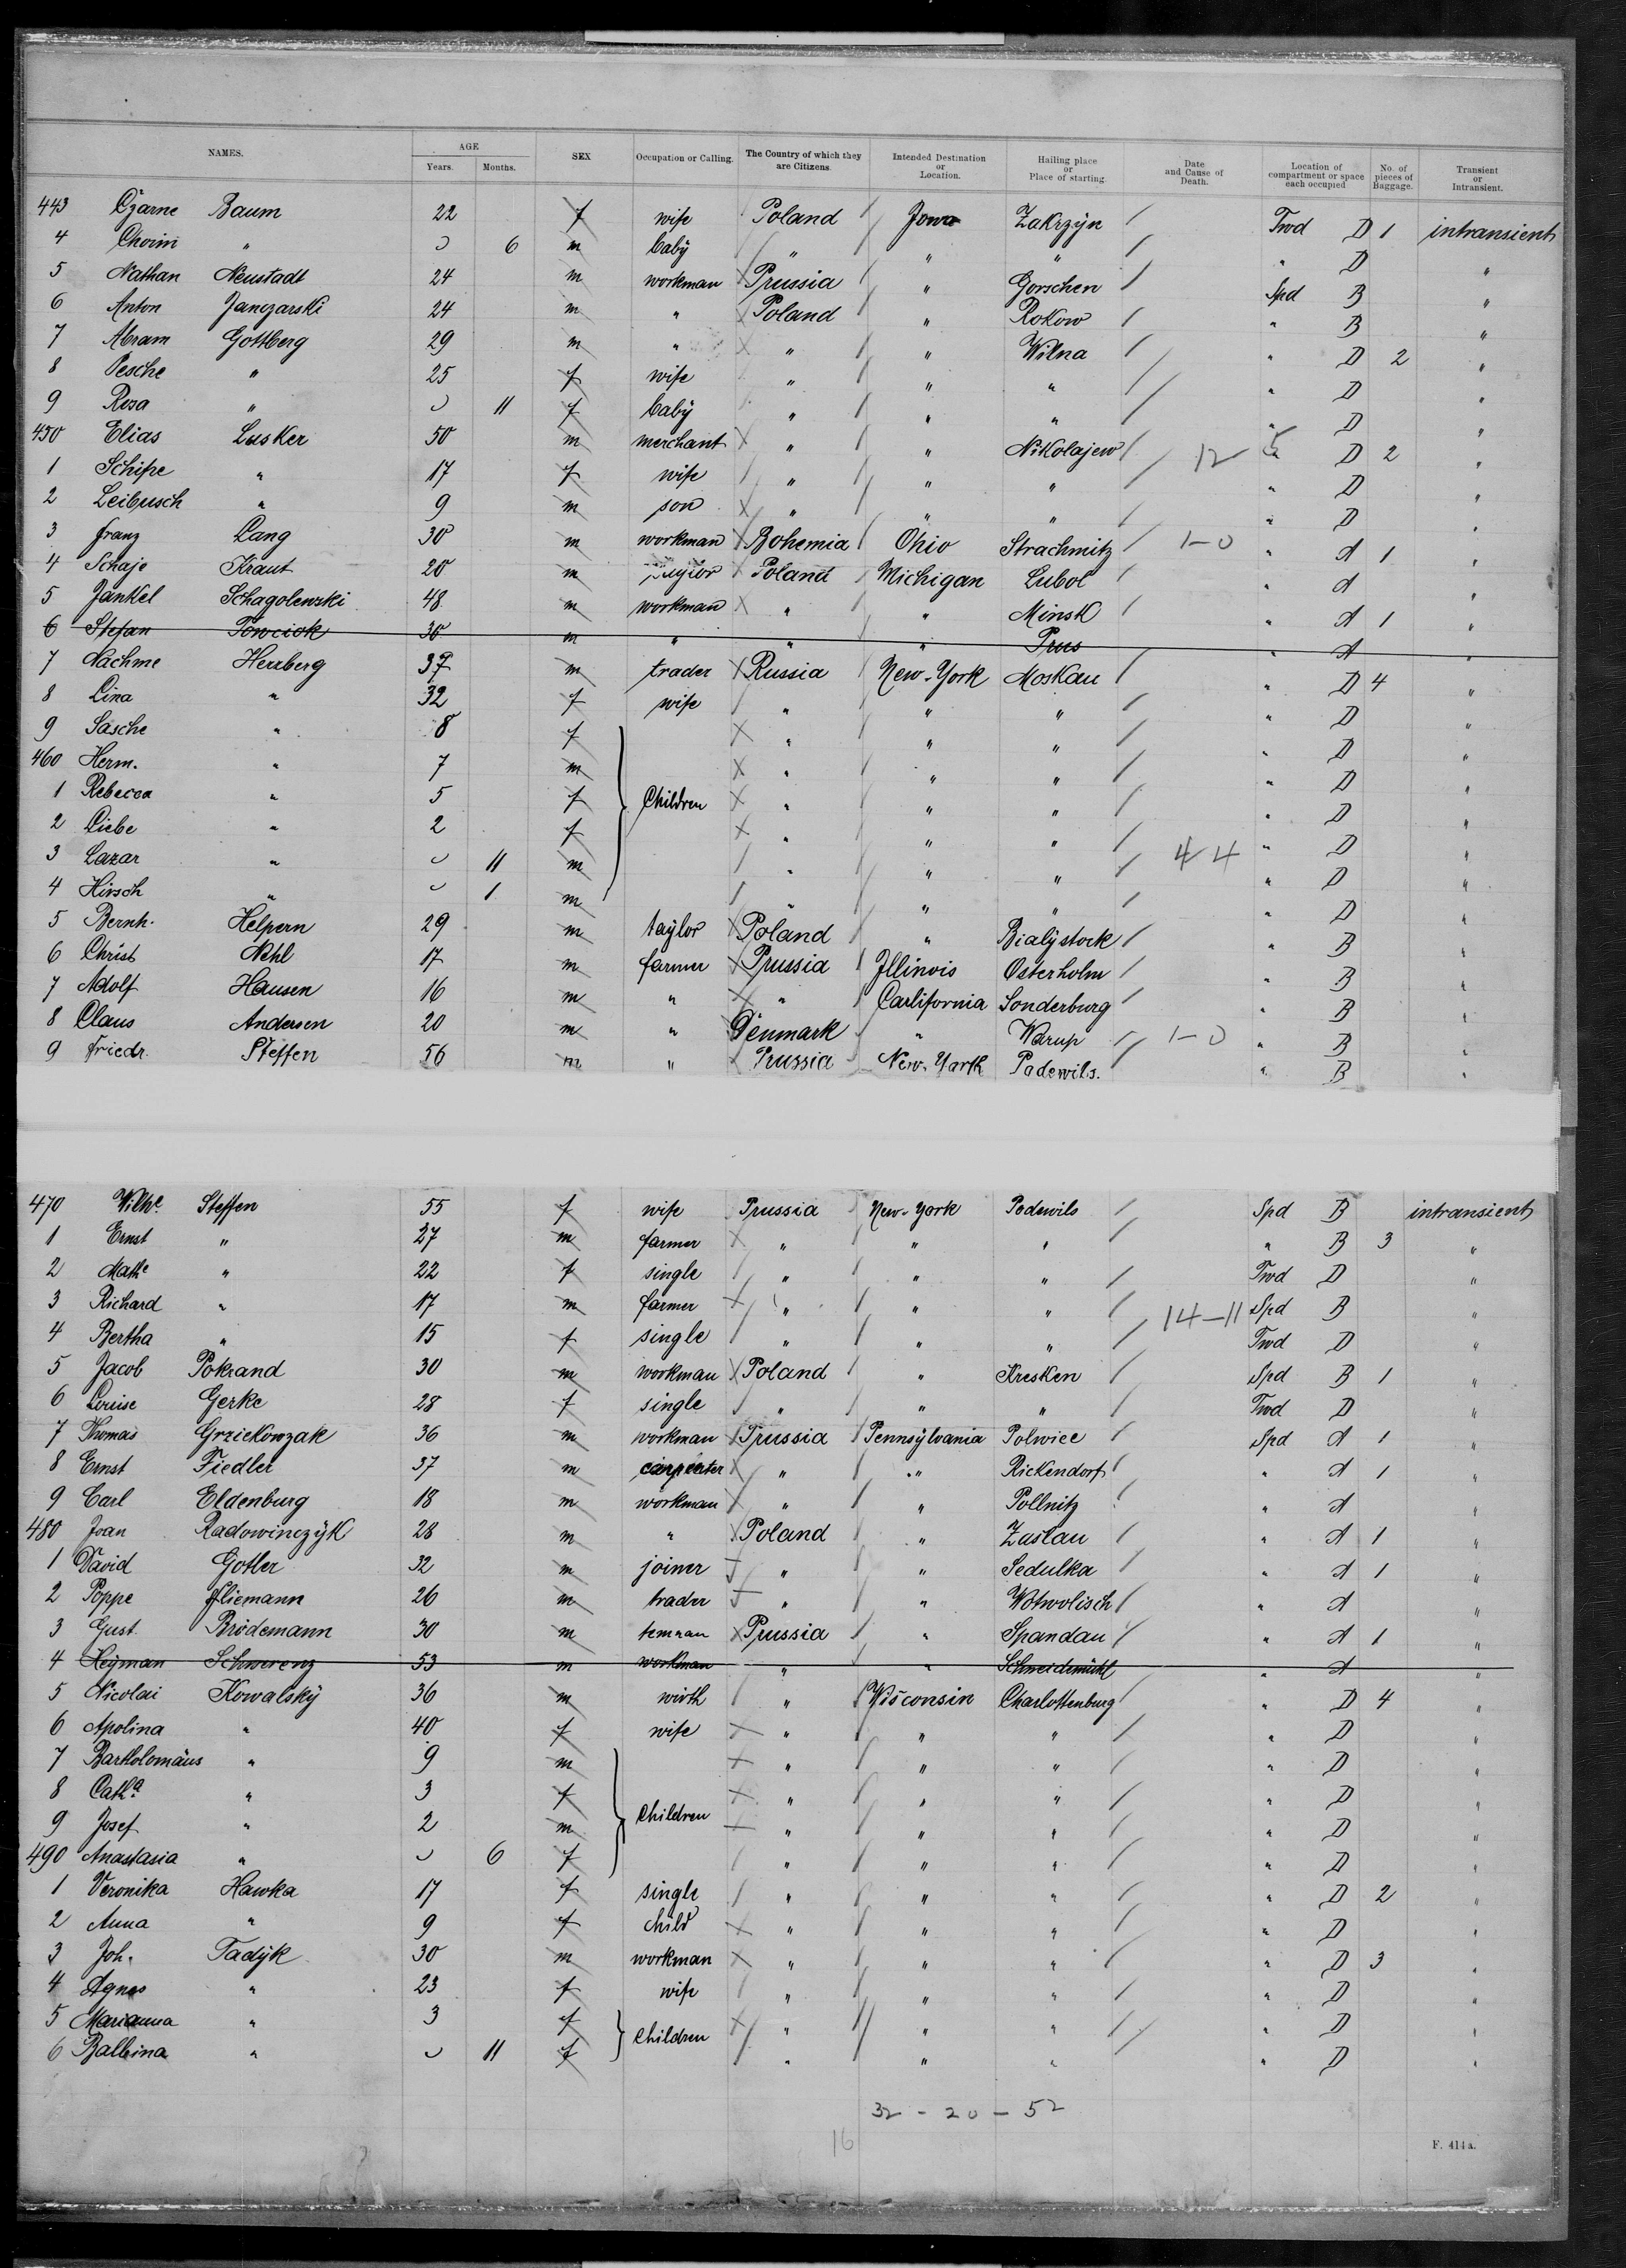 NAMES. AGE SEX Occupation or Calling. The Country of which they are Citizens. Intended Destination or Location. Hailing place or Place of starting. Date and Cause of Death. Location of compartment or space each occupied No. of pieces of Baggage. Transient or Intransient.
Years. Months.
443 Czarne Baum 22 f wife Poland Jowa Zakrzyn Twd D 1 intransient
4 Choim " 6 m baby " " " " D "
5 Nathan Neustadt 24 m workman Prussia " Gorschen Spd B "
6 Anton Janczarski 24 m " Poland " Rokow " B "
7 Abram Gottberg 29 m " " " Wilna " D 2 "
8 Pesche " 25 f wife " " " " D "
9 Rosa " 11 f baby " " " " D "
450 Elias Lusker 50 m merchant " " Nikolajew 12 5 " D 2 "
1 Schipe " 17 f wife " " " " D "
2 Leibusch " 9 m son " " " " D "
3 Franz Lang 30 m workman Bohemia Ohio Strachmitz 1-0 " A 1 "
4 Schaje Kraut 20 m Poland Michigan Lubol " A "
5 Jankel Schagolewski 48 m workman " " Minsk " A 1 "
6 Stefan Powciok 30 m " " " Prus " A "
7 Nachme Herrberg 37 m trader Russia New-York Moskau " D 4 "
8 Lina " 32 f wife " " " " D "
9 Sasche " 8 f " " " " D "
460 Herm. " 7 m " " " " D "
1 Rebecca " 5 f Children " " " " D "
2 Liebe " 2 f " " " " D "
3 Lazar " 11 m " " " 44 " D "
4 Hirsch " 1 m " " " " D "
5 Bernh. Helpern 29 m taylor Poland " Bialystock " B "
6 Christ Nehl 17 m farmer Prussia Jllinois Osterholm " B "
7 Adolf Hausen 16 m " " Carlifornia Sonderburg " B "
8 Claus Andersen 20 m " Denmark " Warup 1-0 " B "
9 Friedr. Steffen 56 m " Prussia New-Yark Padewils. " B "
470 Wilhe. Steffen 55 f wife Prussia New-York Podewils Spd B intransient
1 Ernst " 27 m farmer " " " " B 3 "
2 Mathe " 22 f single " " " Twd D "
3 Richard " 17 m farmer " " " 14-11 Spd B "
4 Bertha " 15 f single " " " Twd D "
5 Jacob Pokrand 30 m workman Poland " Kresken Spd B 1 "
6 Louise Gerke 28 f single " " " Twd D "
7 Thomas Grziekowzak 36 m workman Prussia Pennsylvania Polwice Spd A 1 "
8 Ernst Fiedler 37 m carpenter " " Rickendorf " A 1 "
9 Carl Eldenburg 18 m workman " " Pollnitz " A "
480 Joan Radowinczyk 28 m " Poland " Zaslau " A 1 "
1 David Gotler 32 m joiner " " Sedulka " A 1 "
2 Poppe Fliemann 26 m trader " " Wotwolisch " A "
3 Gust. Brödemann 30 m Prussia " Spandau " A 1 "
4 Heyman Schwerenz 53 m workman " " Schneidemühl " A "
5 Nicolai Kowalsky 36 m wirth " Wisconsin Charlottenburg " D 4 "
6 Apolina " 40 f wife " " " " D "
7 Bartholomäus " 9 m " " " " D "
8 Catha. " 3 f " " " " D "
9 Josef " 2 m Children " " " " D "
490 Anastasia " 6 f " " " " D "
1 Veronika Hawka 17 f single " " " " D 2 "
2 Anna " 9 f child " " " " D "
3 Joh. Tadyk 30 m workman " " " " D 3 "
4 Agnes " 23 f wife " " " " D "
5 Marianna " 3 f Children " " " " D "
6 Balbina " 11 f " " " " D "
32 - 20 - 52
16
F. 414a.